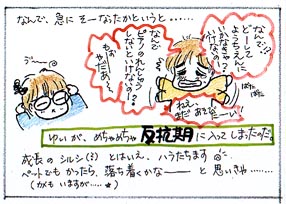 なんで、急に そーなったかというと……
なんで!?
どーして
ようちえんに
いかなきゃ
いけないの!
なんで
ピアノのれんしゅう
しないといけないの!?
もぉ
やだあ〜
ねえ、
まだ あそびたーい!
う〜
ゆいが、めちゃめちゃ 反抗期に入ってしまったのだ。
成長のシルシ(?) とはいえ、ハラたちます
ペットでもかったら、落ち着くかな── と思いきゃ……
(かもいますが……★)